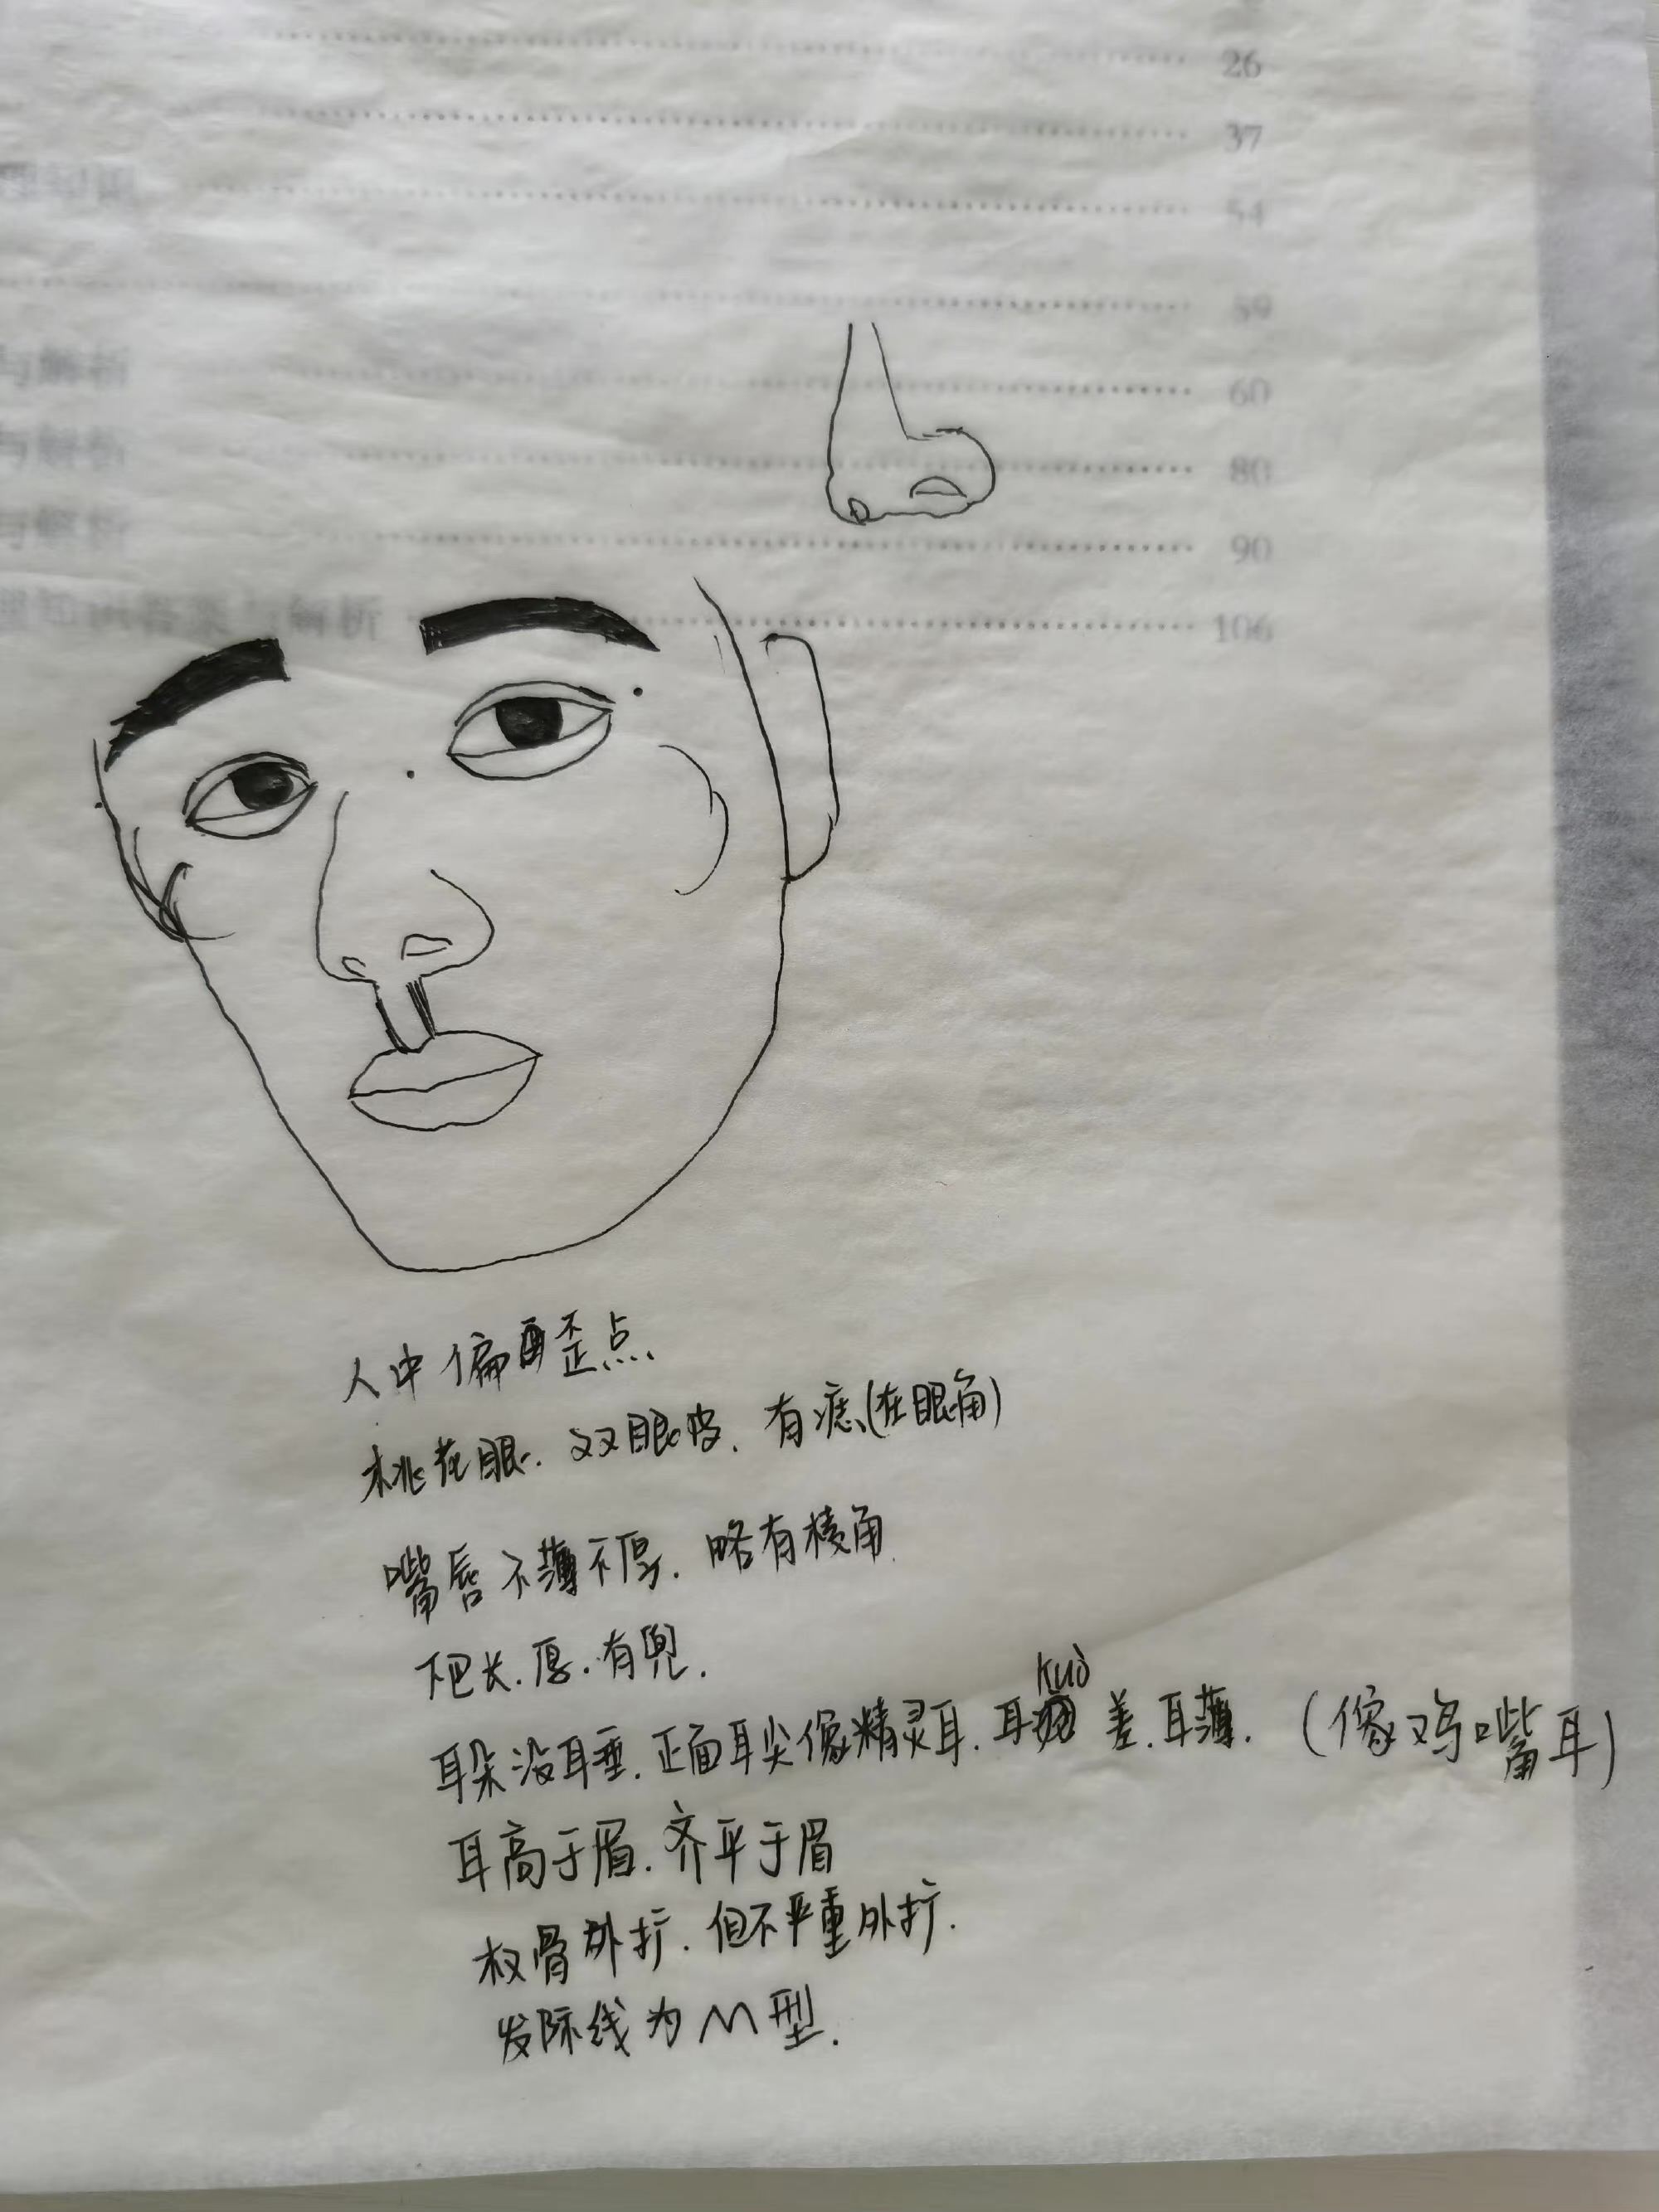 26
37
54
59
与解析 60
与解析 80
与解析 90
答案与解析 106
人中偏歪点、
桃花眼. 双眼皮. 有痣(在眼角)
嘴唇不薄不厚. 略有棱角.
下巴长. 厚. 有兜.
耳朵没耳垂. 正面耳尖像精灵耳. 耳kuò差. 耳薄. (像鸡嘴耳)
耳高于眉. 齐平于眉
权骨外扩. 但不严重外扩.
发际线为M型.